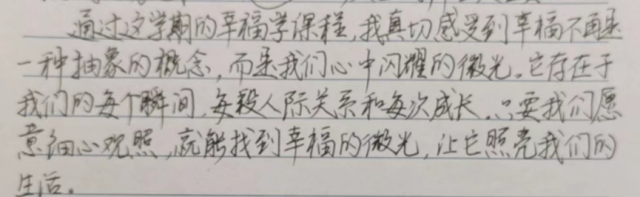 通过这学期的幸福学课程,我真切感受到幸福不再是
一种抽象的概念,而是我们心中闪耀的微光。它存在于
我们的每个瞬间,每段人际关系和每次成长。只要我们愿
意细心观照,就能找到幸福的微光,让它照亮我们的
生活。